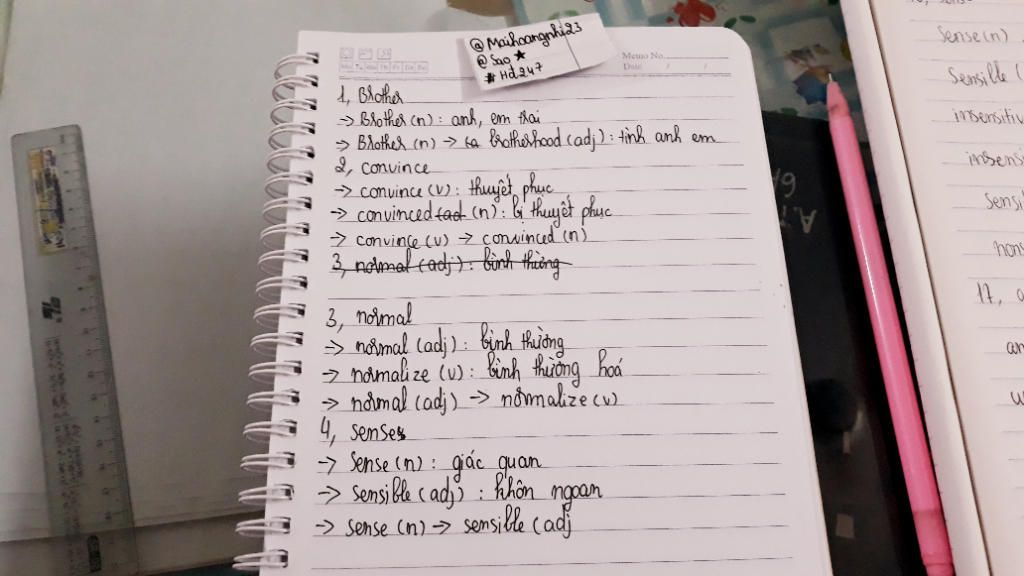 @Maihoangnhi23
@Sao ★
#Hd247
Memo No.
Date / /
Mo Tu We Th Fr Sa Su
1, Brother
→ Brother (n) : anh, em trai
→ Brother (n) → brotherhood (adj) : tình anh em
2, convince
→ convince (v) : thuyết phục
→ convinced (n) : bị thuyết phục
→ convince (v) → convinced (n)
3, normal (adj) : bình thường
3, normal
→ normal (adj) : bình thường
→ normalize (v) : bình thường hoá
→ normal (adj) → normalize (v)
4, sense
→ sense (n) : giác quan
→ sensible (adj) : khôn ngoan
→ sense (n) → sensible (adj
sense (n)
sensible (
17,